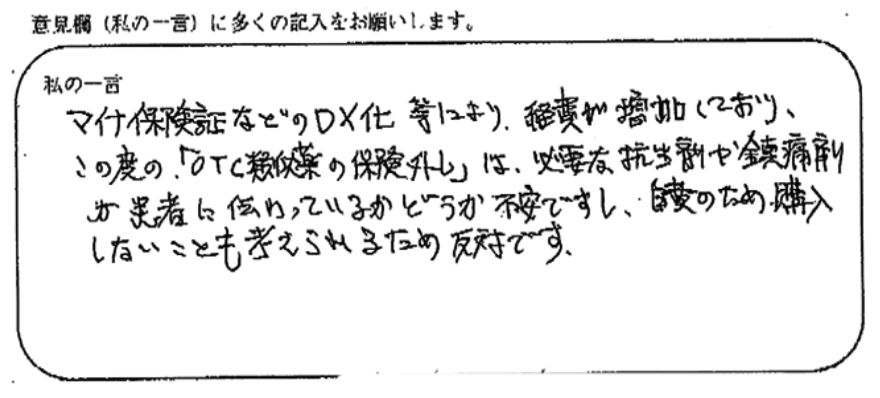 意見欄（私の一言）に多くの記入をお願いします。
私の一言
マイナ保険証などのDX化等により、経費が増加しており、
この度の、「OTC類似薬の保険外し」は、必要な抗生剤や鎮痛剤
が患者に伝わっているかどうか不安ですし、自費のため購入
しないことも考えられるため反対です。